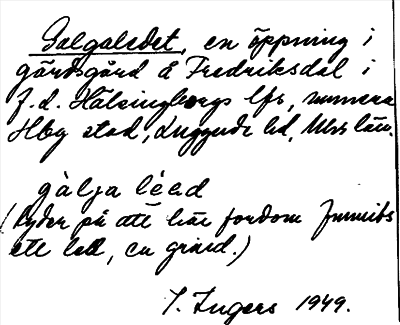 Galgaledet, en öppning i
gärdsgård å Fredriksdal i
f.d. Hälsingborgs lfs, numera
Hbg stad, Luggude hd, Mhs län.
gàlja léed
(tyder på att här fordom funnits
ett led, en grind.)
I. Ingers 1949.